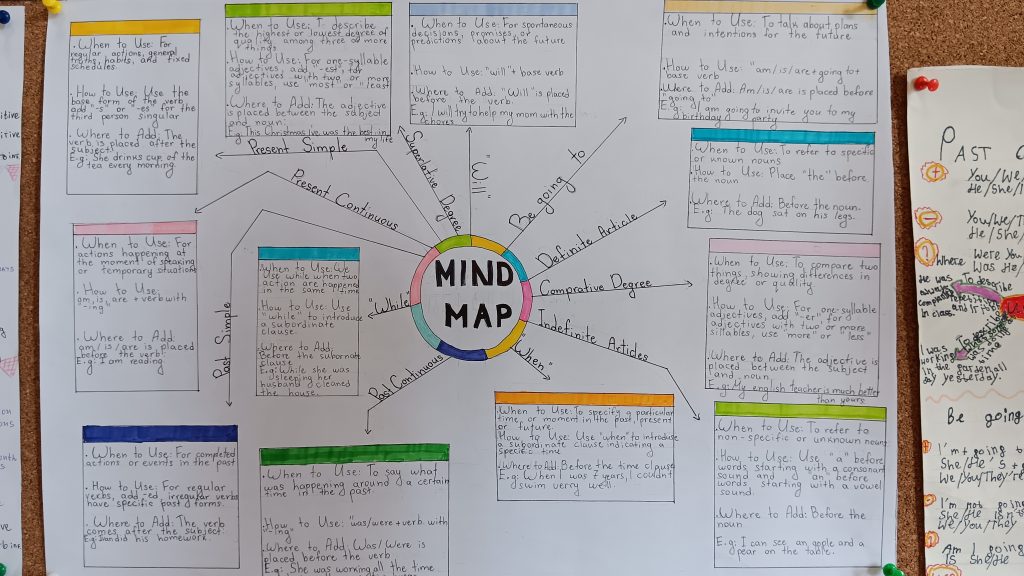 • When to Use: For
regular actions, general
truths, habits, and fixed
schedules.
• How to Use: Use the
base form of the verb
add "-s" or "-es" for the
third person singular
• Where to Add: The
verb is placed after the
subject.
E.g: She drinks cup of the
tea every morning.
• When to Use: To describe
the highest or lowest degree of
quality among three or more
things.
• How to Use: For one-syllable
adjectives, add "-est," for
adjectives with two or more
syllables, use "most" or "least"
• Where to Add: The adjective
is placed between the subject
and noun.
E.g. This Christmas ive was the best in
my life
• When to Use: For spontaneous
decisions, promises, or
predictions about the future
• How to Use: "will" + base verb
• Where to Add: "Will" is placed
before the verb.
E.g: I will try to help my mom with the
chores.
• When to Use: To talk about plans
and intentions for the future
• How to Use: "am/is/are+going to+
base verb
• Were to Add: Am/is/are is placed before
"going to"
E.g: I am going to invite you to my
birthday party
• When to Use: To refer to specific
or known nouns
• How to Use: Place "the" before
the noun
• Where to Add: Before the noun.
E.g: The dog sat on his legs.
• When to Use: For
actions happening at
the moment of speaking
or temporary situations
• How to Use:
am, is, are + verb with
"-ing"
• Where to Add:
am/is/are is placed
before the verb.
E.g: I am reading
When to Use: We
use while when two
action are happened
in the same time
• How to Use: Use
"while" to introduce
a subordinate
clause.
• Where to Add:
Before the subornate
clause
E.g: While she was
sleeping her
husband cleaned
the house.
• When to Use: To compare two
things, showing differences in
degree or quality.
• How to Use: For one-syllable
adjectives, add "-er," for
adjectives with two or more
sillables, use "more" or "less"
• Where to Add: The adjective is
placed between the subject
and noun.
E.g: My english teacher is much better
than yours
• When to Use: For completed
actions or events in the past
• How to Use: For regular
verbs, add -ed, irregular verbs
have specific past forms.
• Where to Add: The verb
comes after the subject.
• When to Use: To say what
was happening around a certain
time in the past
• How to Use: "was/were + verb with
"-ing"
• Where to Add: Was/Were is
placed before the verb
E.g: She was working all the time
• When to Use: To specify a particular
time, or moment in the past, present
or future.
How to Use: Use "when" to introduce
a subordinate clause indicating a
specific time
• Where to Add: Before the time clause
E.g: When I was 7 years, I couldn't
swim verry well
• When to Use: To refer to
non-specific or unknown nouns
• How to Use: Use "a" before
words starting with a consonant
sound and "an" before
words starting with a vowel
sound.
• Where to Add: Before the
noun
E.g: I can see an apple and a
pear on the table.
MIND
MAP
Present Simple
Present Continuous
Suparative Degree
"Will"
Be going to
Definite Article
Comprative Degree
Indefinite Articles
"When"
Past Continuous
"While"
Past Simple
PAST
You/We/
He/She/I
Where were You
Was He/
He was
always
in class.
I was
working
in the garden all
day yesterday.
Be going
I'm + going
She/He
We/You/They're
I'm not going
She/He is
We/You/They
Am I going
IS She/He